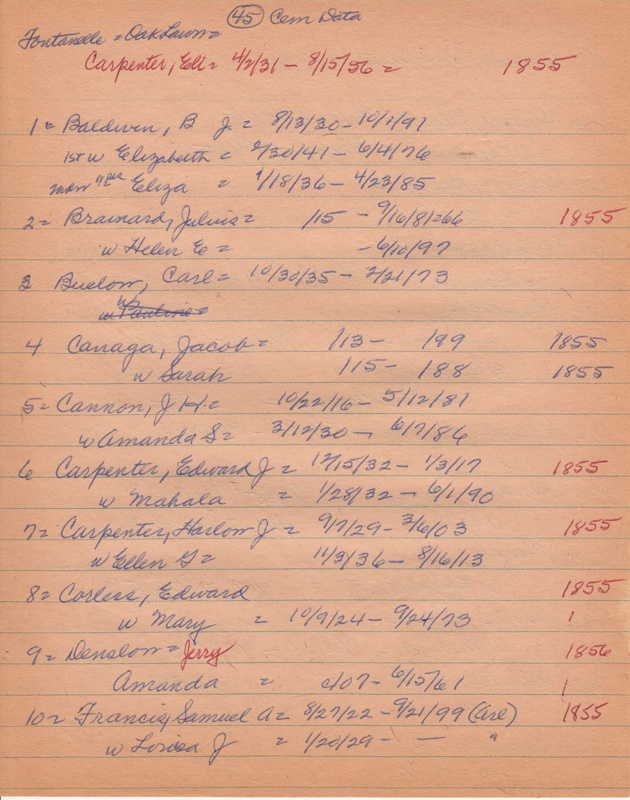 (45) Cem Data
Fontanelle = Oak Lawn =
Carpenter, Ell = 4/2/31 - 8/15/56 = 1855
1 = Baldwin, B J. = 8/13/30 - 10/1/91
1st w Elizabeth = 2/30/41 - 6/4/76
Eliza = 1/18/36 - 4/23/85
2 = Brainard, Julius = /15 - 9/16/81=66 1855
w Helen E = - 6/10/97
3 Buelow, Carl = 10/30/35 - 2/21/73
w Pauline =
4 Canaga, Jacob = /13 - /99 1855
w Sarah /15 - /88 1855
5 = Cannon, J H. = 10/22/16 - 5/12/81
w Amanda S = 3/12/30 - 6/7/86
6 Carpenter, Edward J = 12/15/32 - 1/3/17 1855
w Mahala = 1/28/32 - 6/1/90
7 = Carpenter, Harlow J = 9/7/29 - 3/6/03 1855
w Ellen G = 11/3/36 - 8/16/13
8 = Corless, Edward 1855
w Mary = 10/9/24 - 9/24/73 1
9 = Denslow = Jerry 1856
Amanda = c/07 - 6/15/61 1
10 = Francis, Samuel A = 8/27/22 - 9/21/99 (Arl) 1855
w Lorisa J = 1/20/29 - — "